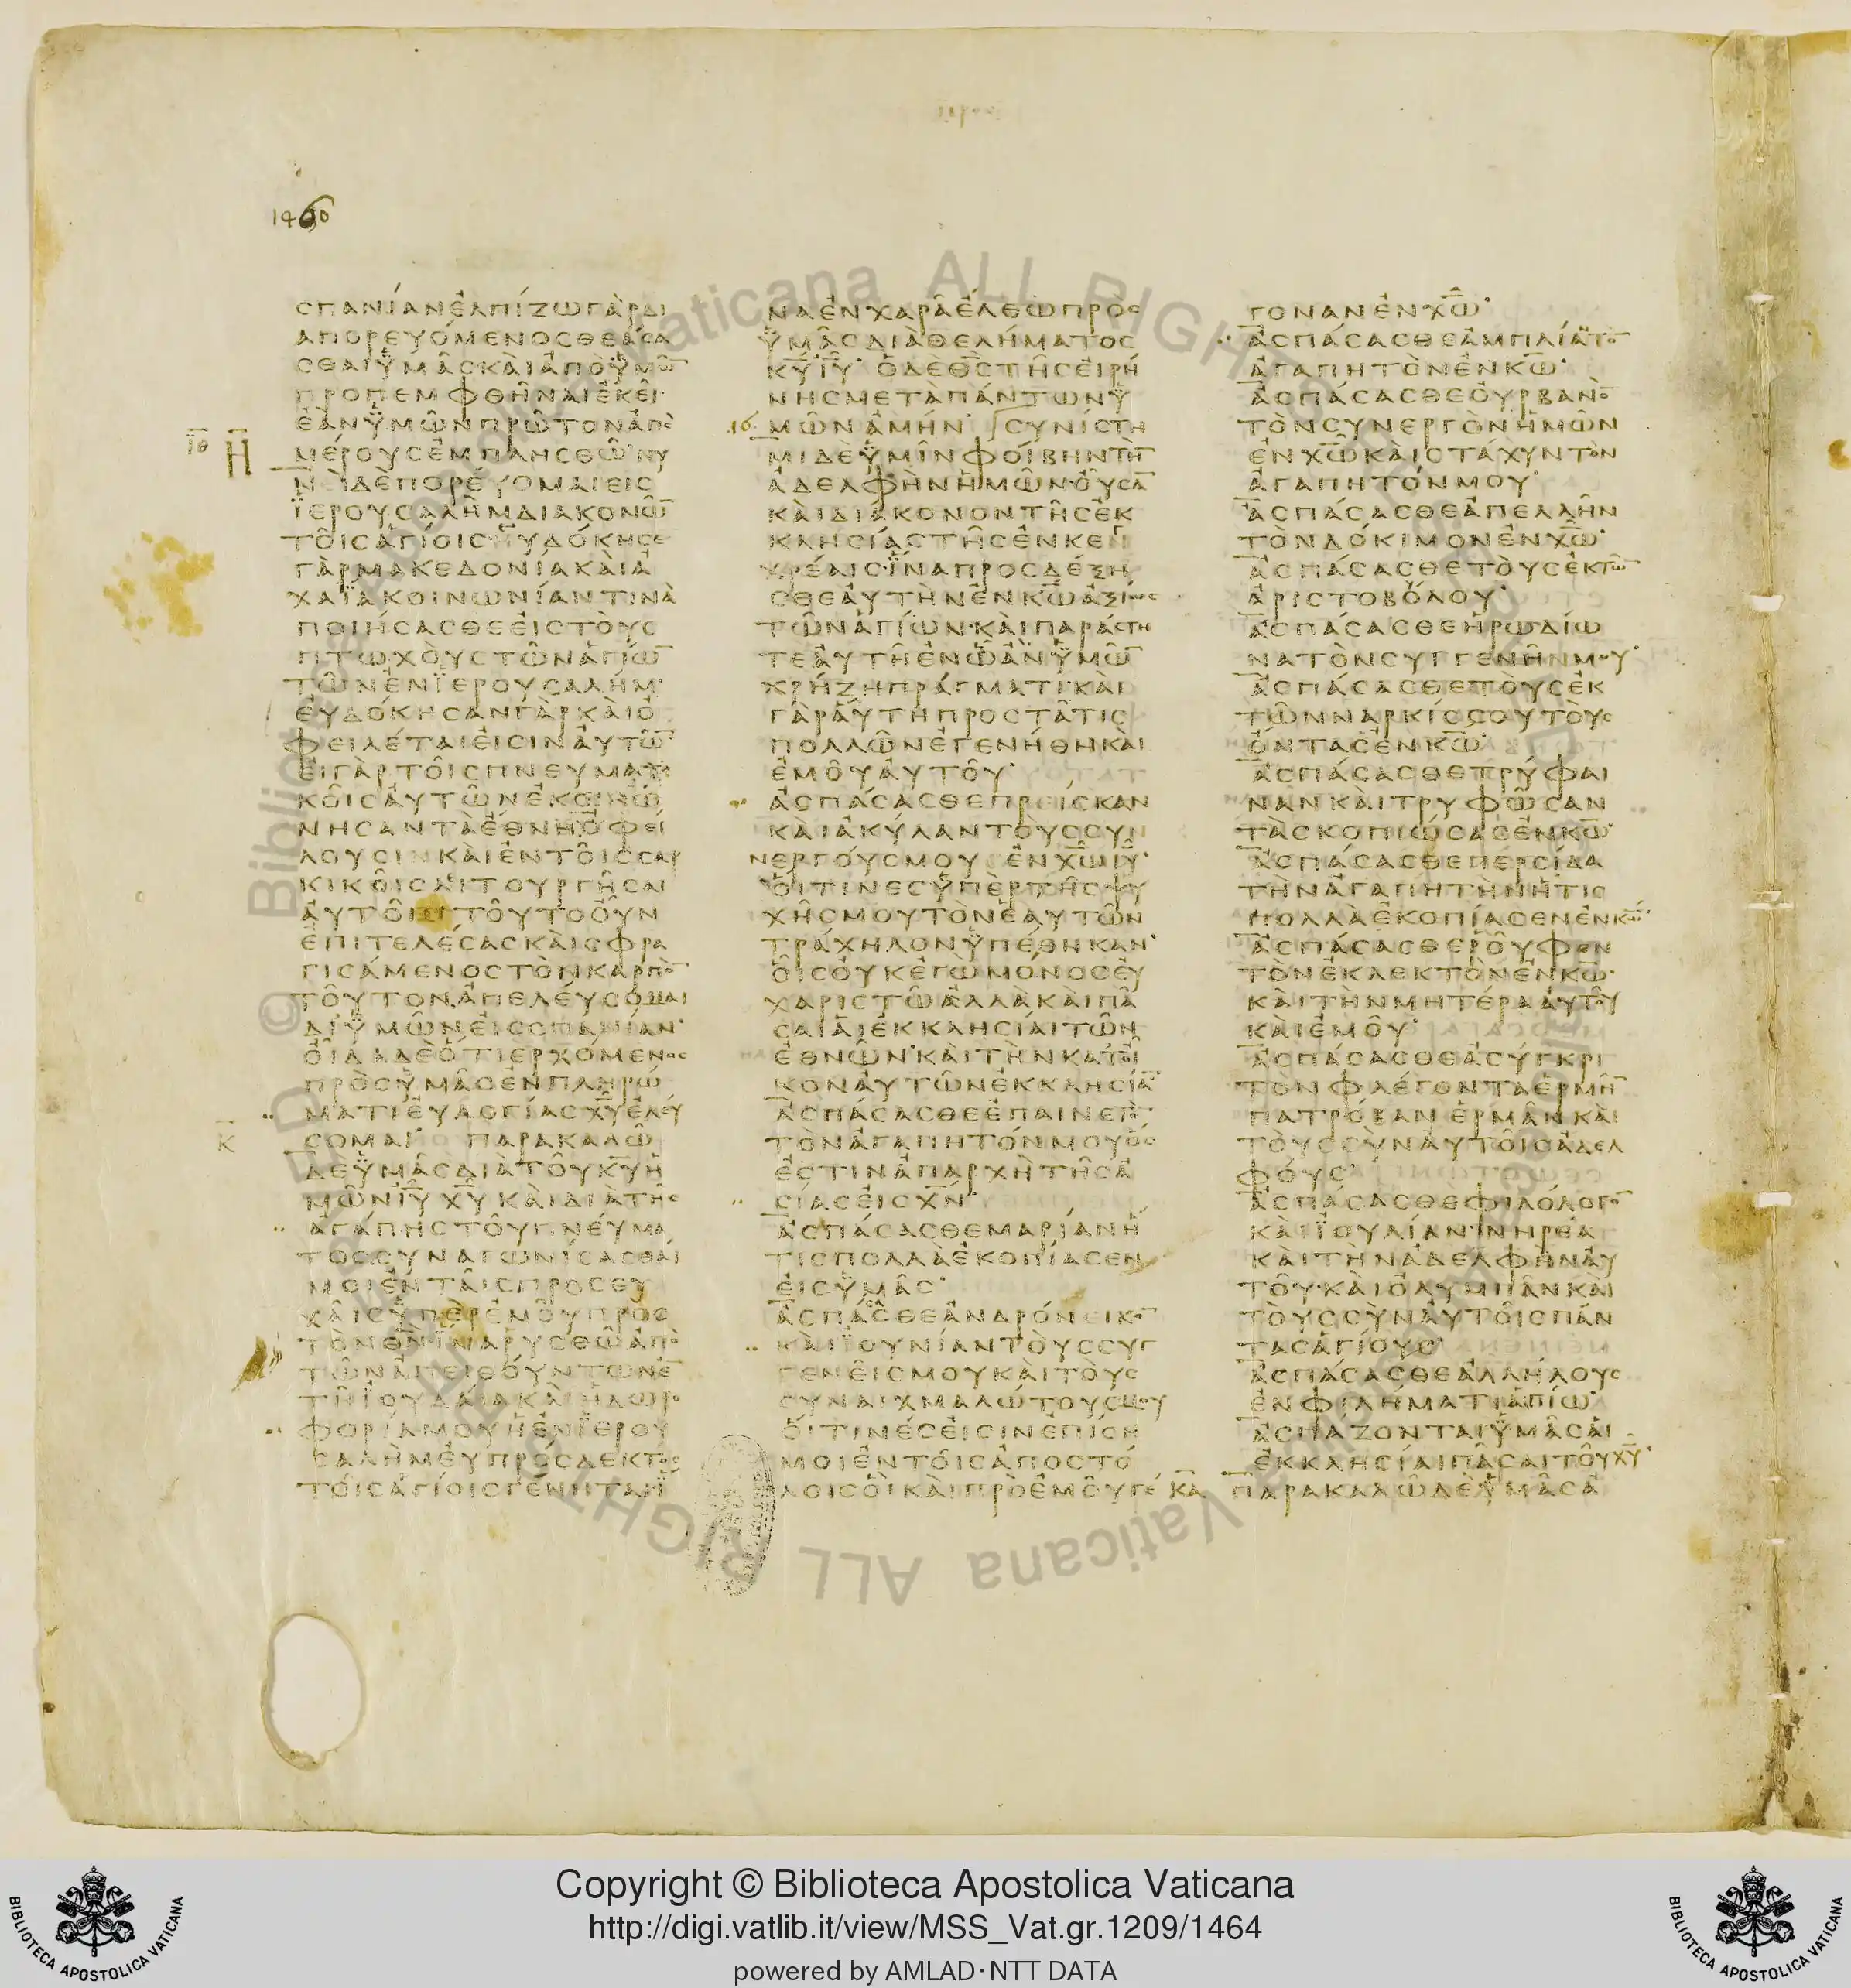 1460
ϹΠΑΝΊΑΝἘΛΠΊΖΩΓᾺΡΔΙ
ΑΠΟΡΕΥΌΜΕΝΟϹΘΕΆϹΑ
ϹΘΑΙΫΜΑ͂ϹΚᾺΙἈΠῸΫΜΩ̅
ΠΡΟΠΕΜΦΘΗ͂ΝΑΙἘΚΕΙ͂
ἘᾺΝΫΜΩ͂ΝΠΡΩ͂ΤΟΝἈΠῸ
ΜΈΡΟΥϹἘΜΠΛΗϹΘΩ͂ΝΥ
ΝῚΔῈΠΟΡΕΎΟΜΑΙΕΙϹ
ΪΕΡΟΥϹΑΛῊΜΔΙΑΚΟΝΩ͂
ΤΟΙ͂ϹἉΓΊΟΙϹ ΥΔΌΚΗϹΕ
ΓᾺΡΜΑΚΕΔΟΝΊΑΚᾺΙἈ
ΧΑΪ́ΑΚΟΙΝΩΝΊΑΝΤΙΝᾺ
ΠΟΙΉϹΑϹΘΕἘΙϹΤΟῪϹ
ΠΤΩΧΟῪϹΤΩ͂ΝἉΓΊΩ̅
ΤΩ͂ΝἘΝΪΕΡΟΥϹΑΛΉΜ
ἘΥΔΌΚΗϹΑΝΓᾺΡΚᾺΙὈ
ΦΕΙΛΈΤΑΙἘΙϹΙΝἈΥΤΩ̅
ἘΙΓᾺΡΤΟΙ͂ϹΠΝΕΥΜΑΤΙ
ΚΟΙ͂ϹἈΥΤΩ͂ΝἘΚΟΙΝΏ
ΝΗϹΑΝΤᾺἜΘΝΗὈΦΕΊ
ΛΟΥϹΙΝΚᾺΙἘΝΤΟΙ͂ϹϹΑΡ
ΚΙΚΟΙ͂ϹΛΙΤΟΥΡΓΗ͂ϹΑΙ
ἈΥΤΟΙ͂ϹΤΟΥ͂ΤΟΟΥ͂Ν
ἘΠΙΤΕΛΈϹΑϹΚᾺΙϹΦΡΑ
ΓΙϹΆΜΕΝΟϹΤῸΝΚΑΡΠῸ̅
ΤΟΥ͂ΤΟΝἈΠΕΛΕΎϹΟΜΑΙ
ΔΙΫΜΩ͂ΝἘΙϹϹΠΑΝΊΑΝ
ὈΙ͂ΔΑΔῈὍΤΙΕΡΧΌΜΕΝΟϹ
ΠΡῸϹΫΜΑ͂ϹἘΝΠΛΗΡΏ
ΜΑΤΙἘΥΛΟΓΊΑϹΧ̅Υ̅ἘΛΕΎ
Κ̅ ϹΟΜΑΙ ΠΑΡΑΚΑΛΩ͂
ΔΕΫΜΑ͂ϹΔΙᾺΤΟΥ͂Κ̅Υ̅Ἡ
ΜΩ͂ΝΙ̅Υ̅ Χ̅Υ̅ ΚᾺΙΔΙᾺΤΗ͂Ϲ
ἈΓΆΠΗϹΤΟΥ͂ΠΝΕΎΜΑ
ΤΟϹϹΥΝΑΓΩΝΊϹΑϹΘΆΙ
ΜΟΙἘΝΤΑΙ͂ϹΠΡΟϹΕΥ
ΧΑΙ͂ϹΫΠῈΡἘΜΟΥ͂ΠΡῸϹ
ΤῸΝΘ̅Ν̅ΪΝΑΡΥϹΘΩ͂ἈΠῸ
ΤΩ͂ΝἈΠΕΙΘΟΎΝΤΩΝἘ̅
ΤΗ͂ΪΟΥΔΆΙΑΚᾺΙἩΔΩΡΟ
ΦΟΡΊΑΜΟΥἩἘΝΪΕΡΟΥ
ϹΑΛῊΜἘΥΠΡΌϹΔΕΚΤΟϹ
ΤΟΙ͂ϹἉΓΊΟΙϹΓΈΝΗΤΑΙΪ
ΝΑἘΝΧΑΡΑ͂ἘΛΘΏΝΠΡῸϹ
ΫΜΑ͂ϹΔΙᾺΘΕΛΉΜΑΤΟϹ
Κ̅Υ̅Ι̅Υ̅ ὉΔῈΘ̅Ϲ̅ΤΗ͂ϹἘΙΡΉ
ΝΗϹΜΕΤᾺΠΆΝΤΩΝΫ
16 ΜΩ͂ΝἈΜΉΝ ϹΥΝΊϹΤΗ
ΜΙΔῈΫΜΙ͂ΝΦΟΊΒΗΝΤῊ̅
ἈΔΕΛΦῊΝἩΜΩ͂ΝΟΥ͂ϹΑ̅
ΚᾺΙΔΙΆΚΟΝΟΝΤΗ͂ϹἘΚ
ΚΛΗϹΊΑϹΤΗ͂ϹἘΝΚΕΓ
ΧΡΕΑΙ͂ϹΪΝΑΠΡΟϹΔΈΞΗ
ϹΘΕἈΥΤῊΝἘΝΚ̅Ω̅ἈΞΊΩϹ
ΤΩ͂ΝἉΓΊΩΝΚᾺΙΠΑΡΆϹΤΗ
ΤΕἈΥΤΗ͂ἘΝΩ͂ἊΝΫΜΩ̅
ΧΡΉΖΗΠΡΆΓΜΑΤΙΚᾺΙ
ΓᾺΡἈΥΤῊΠΡΟϹΤΑ͂ΤΙϹ
ΠΟΛΛΩ͂ΝἘΓΕΝΉΘΗΚᾺΙ
ἘΜΟΥ͂ἈΥΤΟΥ͂
ἈϹΠΆϹΑϹΘΕΠΡΕΙϹΚΑΝ
ΚᾺΙἈΚΎΛΑΝΤΟῪϹϹΥΝ
ΝΕΡΓΟΎϹΜΟΥ ἘΝΧ̅Ω̅Ι̅Υ̅
ὍΙΤΙΝΕϹΫΠῈΡΤΗ͂ϹΨΥ
ΧΗ͂ϹΜΟΥΤῸΝἙΑΥΤΩ͂Ν
ΤΡΆΧΗΛΟΝΫΠΈΘΗΚΑΝ
ὉΙ͂ϹΟΥΚἘΓῺΜΌΝΟϹἘΥ
ΧΑΡΙϹΤΩ͂ἈΛΛᾺΚᾺΙΠΑ͂
ϹΑΙἉΙἘΚΚΛΗϹΊΑΙΤΩ͂Ν
ἘΘΝΩ͂Ν ΚᾺΙΤῊΝΚΑΤΟΙ͂
ΚΟΝἈΥΤΩ͂ΝἘΚΚΛΗϹΊΑ̅
ἈϹΠΆϹΑϹΘΕἘΠΑΙΝΕΤῸ
ΤῸΝἈΓΑΠΗΤΌΝΜΟΥὍϹ
ἘϹΤΙΝἈΠΑΡΧῊΤΗ͂ϹἈ
ϹΊΑϹἘΙϹΧ̅Ν̅
ἈϹΠΆϹΑϹΘΕΜΑΡΊΑΝἭ
ΤΙϹΠΟΛΛᾺἘΚΟΠΊΑϹΕΝ
ἘΙϹΫΜΑ͂Ϲ
ἈϹΠΆϹΘΕἈΝΔΡΌΝΕΙΚΟ̅
ΚᾺΙΪΟΥΝΊΑΝΤΟῪϹϹΥΓ
ΓΕΝΕΙ͂ϹΜΟΥΚᾺΙΤΟῪϹ
ϹΥΝΑΙΧΜΑΛΏΤΟΥϹΜΟΥ
ὍΙΤΙΝΈϹἘΙϹΙΝἘΠΊϹΗ
ΜΟΙἘΝΤΟΙ͂ϹἈΠΟϹΤΌ
ΛΟΙϹὉῚΚᾺΙΠΡῸἘΜΟΥ͂ΓΈ
ΓΟΝΑΝἘΝΧ̅Ω̅
ἈϹΠΆϹΑϹΘΕἈΜΠΛΙΆΤΟ̅
ἈΓΑΠΗΤῸΝἘΝΚ̅Ω̅
ἈϹΠΆϹΑϹΘΕΟΥΡΒΑΝῸ
ΤῸΝϹΥΝΕΡΓῸΝἩΜΩ͂Ν
ἘΝΧ̅Ω̅ΚᾺΙϹΤΆΧΥΝΤῸΝ
ἈΓΑΠΗΤΌΝΜΟΥ
ἈϹΠΆϹΑϹΘΕἈΠΕΛΛΗ͂Ν
ΤῸΝΔΌΚΙΜΟΝἘΝΧ̅Ω̅
ἈϹΠΆϹΑϹΘΕΤΟῪϹἘΚΤΩ̅
ἈΡΙϹΤΟΒΌΛΟΥ
ἈϹΠΆϹΑϹΘΕἩΡΩΔΊΩ
ΝΑΤῸΝϹΥΓΓΕΝΗ͂ΝΜΟΥ
ἈϹΠΆϹΑϹΘΕΤΟῪϹἘΚ
ΤΩ͂ΝΝΑΡΚΊϹϹΟΥΤΟῪϹ
ὌΝΤΑϹἘΝΚ̅Ω̅
ἈϹΠΆϹΑϹΘΕΤΡΎΦΑΙ
ΝΑΝΚᾺΙΤΡΥΦΩ͂ϹΑΝ
ΤᾺϹΚΟΠΙΏϹΑϹἘΝΚ̅Ω̅
ἈϹΠΆϹΑϹΘΕΠΕΡϹΊΔΑ
ΤῊΝἈΓΑΠΗΤῊΝἭΤΙϹ
ΠΟΛΛᾺἘΚΟΠΊΑϹΕΝἘΝΚ̅Ω̅
ἈϹΠΆϹΑϹΘΕΡΟΥ͂ΦΟΝ
ΤῸΝἘΚΛΕΚΤῸΝἘΝΚ̅Ω̅
ΚᾺΙΤῊΝΜΗΤΈΡΑἈΥΤΟΥ͂
ΚᾺΙἘΜΟΥ͂
ἈϹΠΆϹΑϹΘΕἈϹΎΓΚΡΙ
ΤΟΝΦΛΈΓΟΝΤΑἘΡΜΗ̅
ΠΑΤΡΌΒΑΝἘΡΜΑ͂ΝΚᾺΙ
ΤΟῪϹϹῪΝἈΥΤΟΙ͂ϹἈΔΕΛ
ΦΟΎϹ
ἈϹΠΆϹΑϹΘΕΦΙΛΌΛΟΓΟ̅
ΚᾺΙΪΟΥΛΊΑΝΝΗΡΈΑ
ΚᾺΙΤῊΝἈΔΕΛΦῊΝἈΥ
ΤΟΥ͂ΚᾺΙὈΛΥΜΠΑ͂ΝΚᾺΙ
ΤΟῪϹϹῪΝἈΥΤΟΙ͂ϹΠΆΝ
ΤΑϹἉΓΊΟΥϹ
ἈϹΠΆϹΑϹΘΕἈΛΛΉΛΟΥϹ
ἘΝΦΙΛΉΜΑΤΙἉΓΊΩ
ἈϹΠΆΖΟΝΤΑΙΫΜΑ͂ϹἉΙ
ἘΚΚΛΗϹΊΑΙΠΑ͂ϹΑΙΤΟΥ͂Χ̅Υ̅
Κ̅Α̅ ΠΑΡΑΚΑΛΩ͂ΔῈΫΜΑ͂ϹἈ
Copyright © Biblioteca Apostolica Vaticana
http://digi.vatlib.it/view/MSS_Vat.gr.1209/1464
powered by AMLAD·NTT DATA
BIBLIOTECA APOSTOLICA VATICANA
BIBLIOTECA APOSTOLICA VATICANA